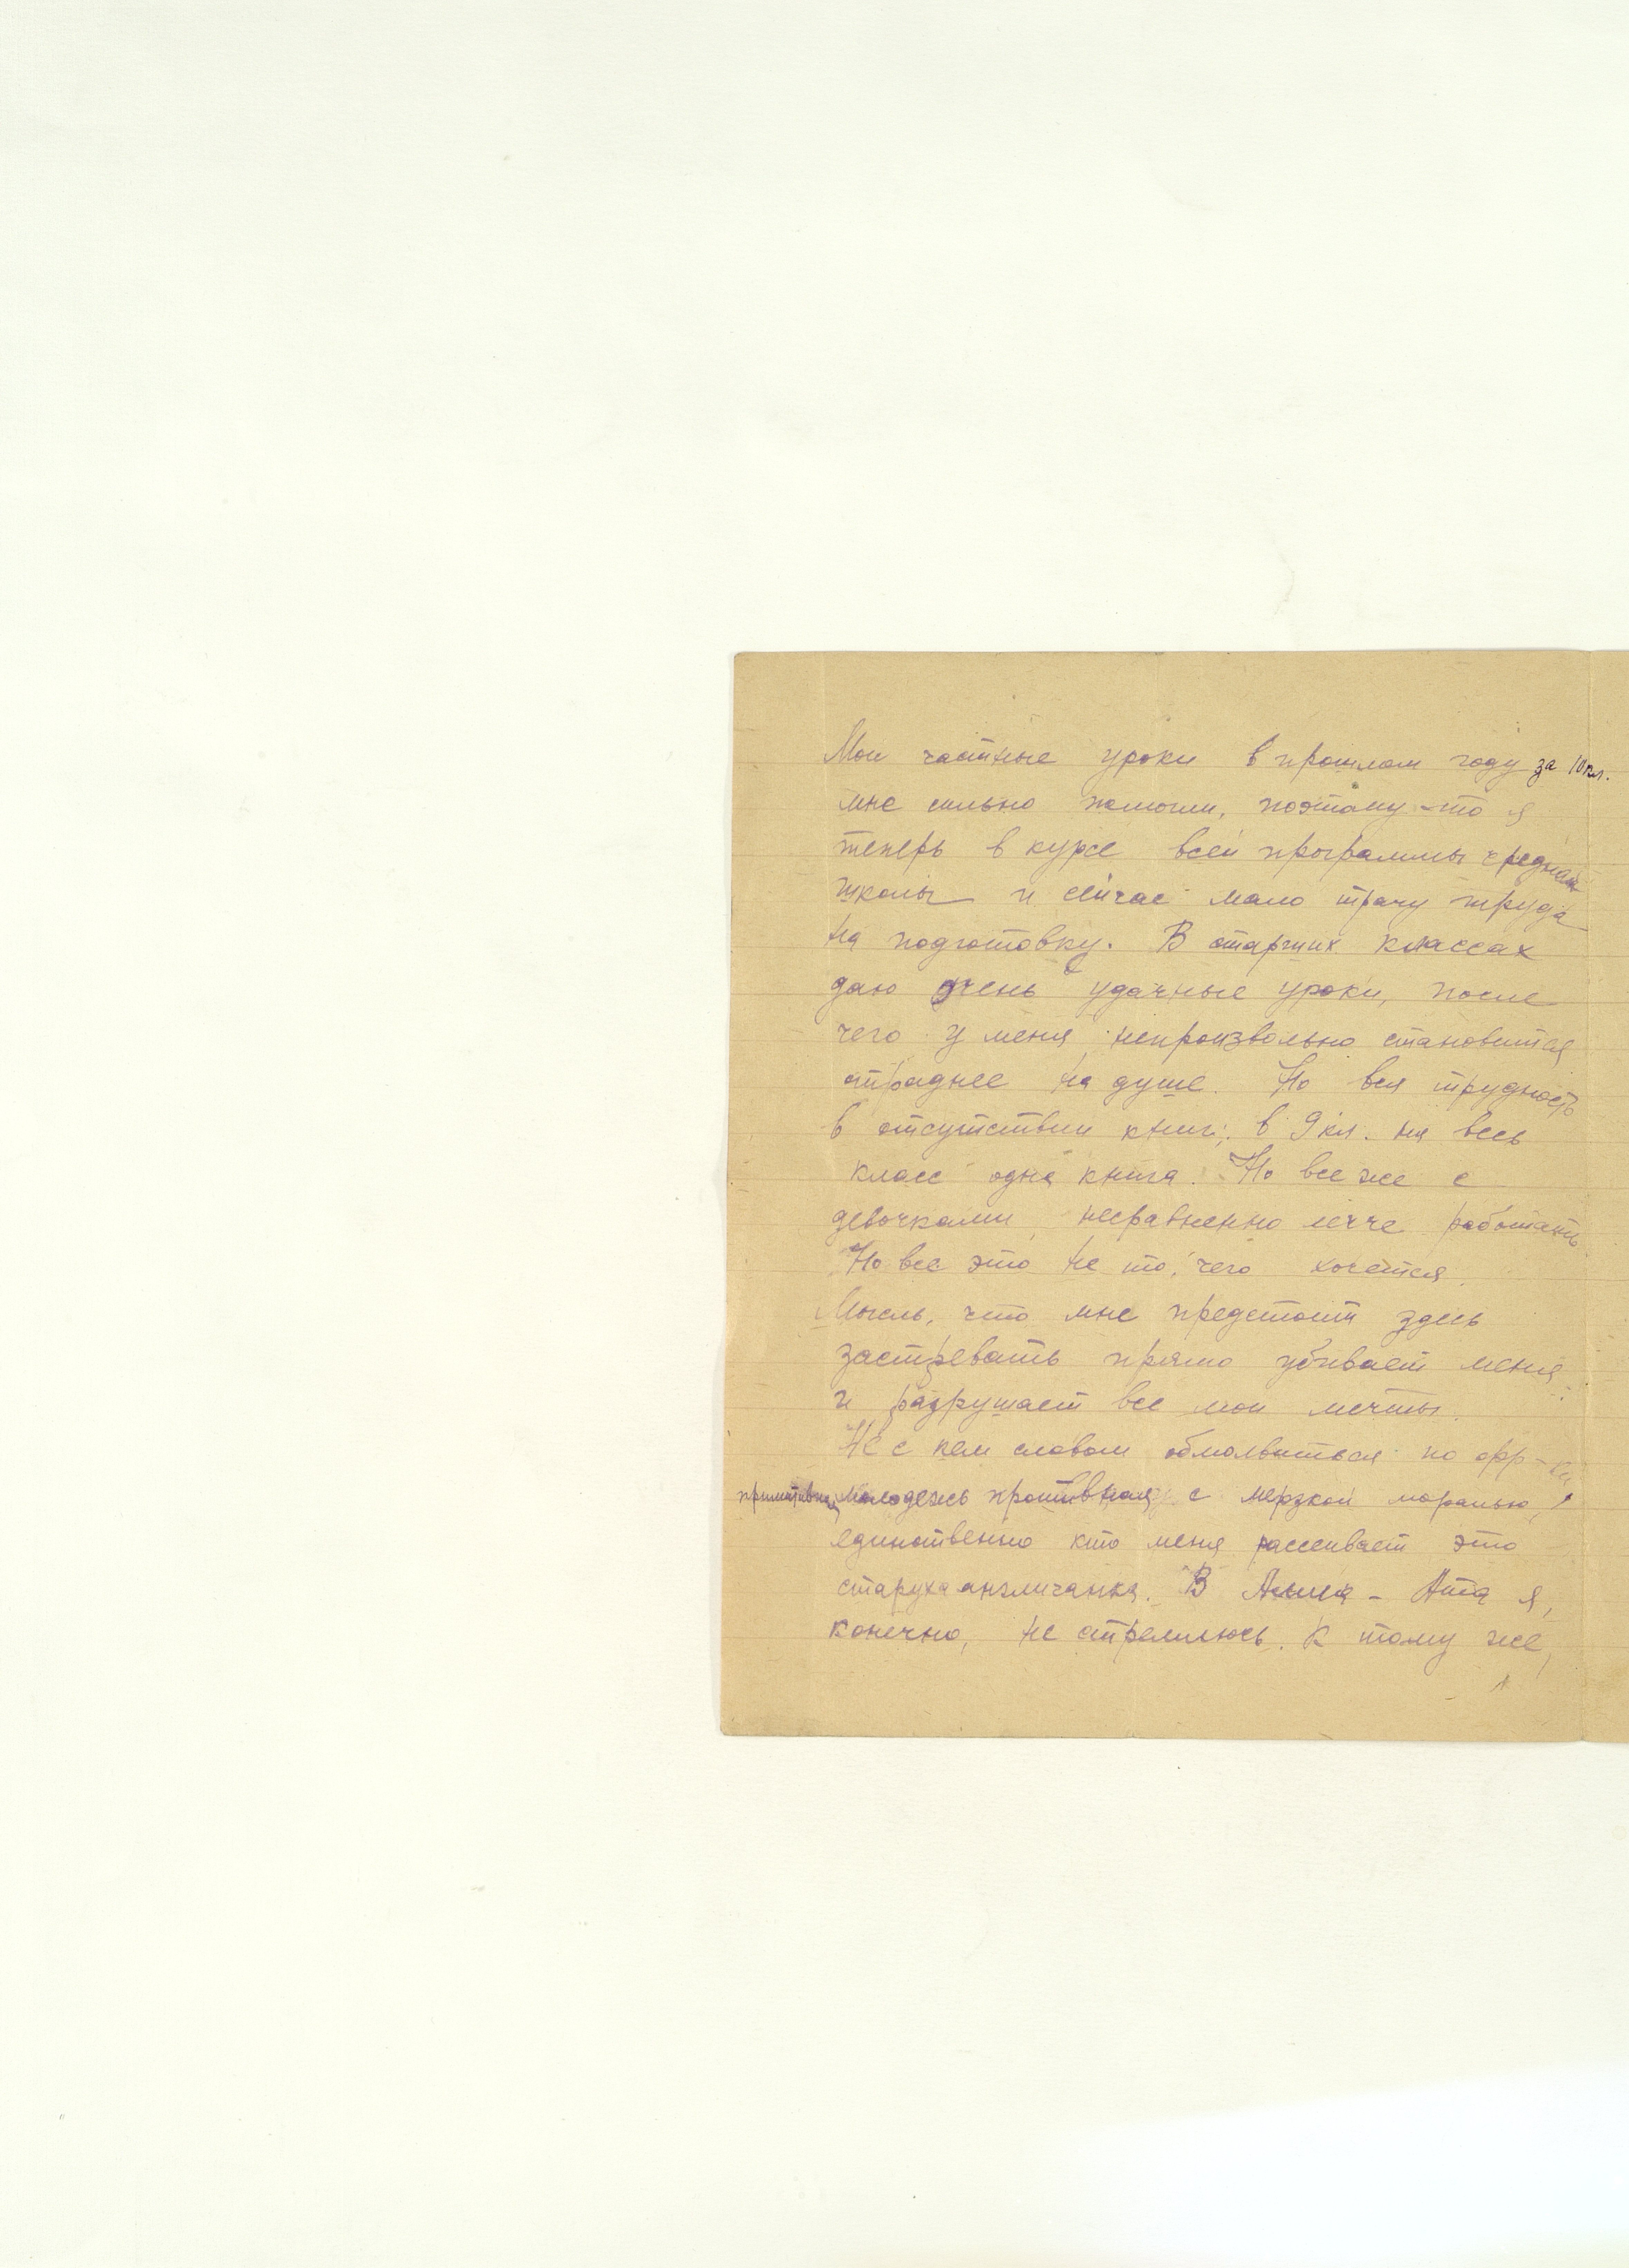 Мои частные уроки в прошлом году за 10 кл.
мне сильно помогли, поэтому-то я
теперь в курсе всей программы средней
школы и сейчас мало трачу труда
на подготовку. В старших классах
даю очень удачные уроки, после
чего у меня непроизвольно становится
отраднее на душе. Но вся трудность
в отсутствии книг; в 9 кл. на весь
класс одна книга. Но все же с
девочками несравненно легче работать.
Но все это не то, чего хочется.
Мысль, что мне предстоит здесь
застревать прямо убивает меня
и разрушает все мои мечты.
Не с кем словом обмолвиться по фр-ки
примитивная молодежь противная с мерзкой моралью,
единственно кто меня рассеивает это
старуха англичанка. В Алма-Ата я,
конечно, не стремлюсь. К тому же,